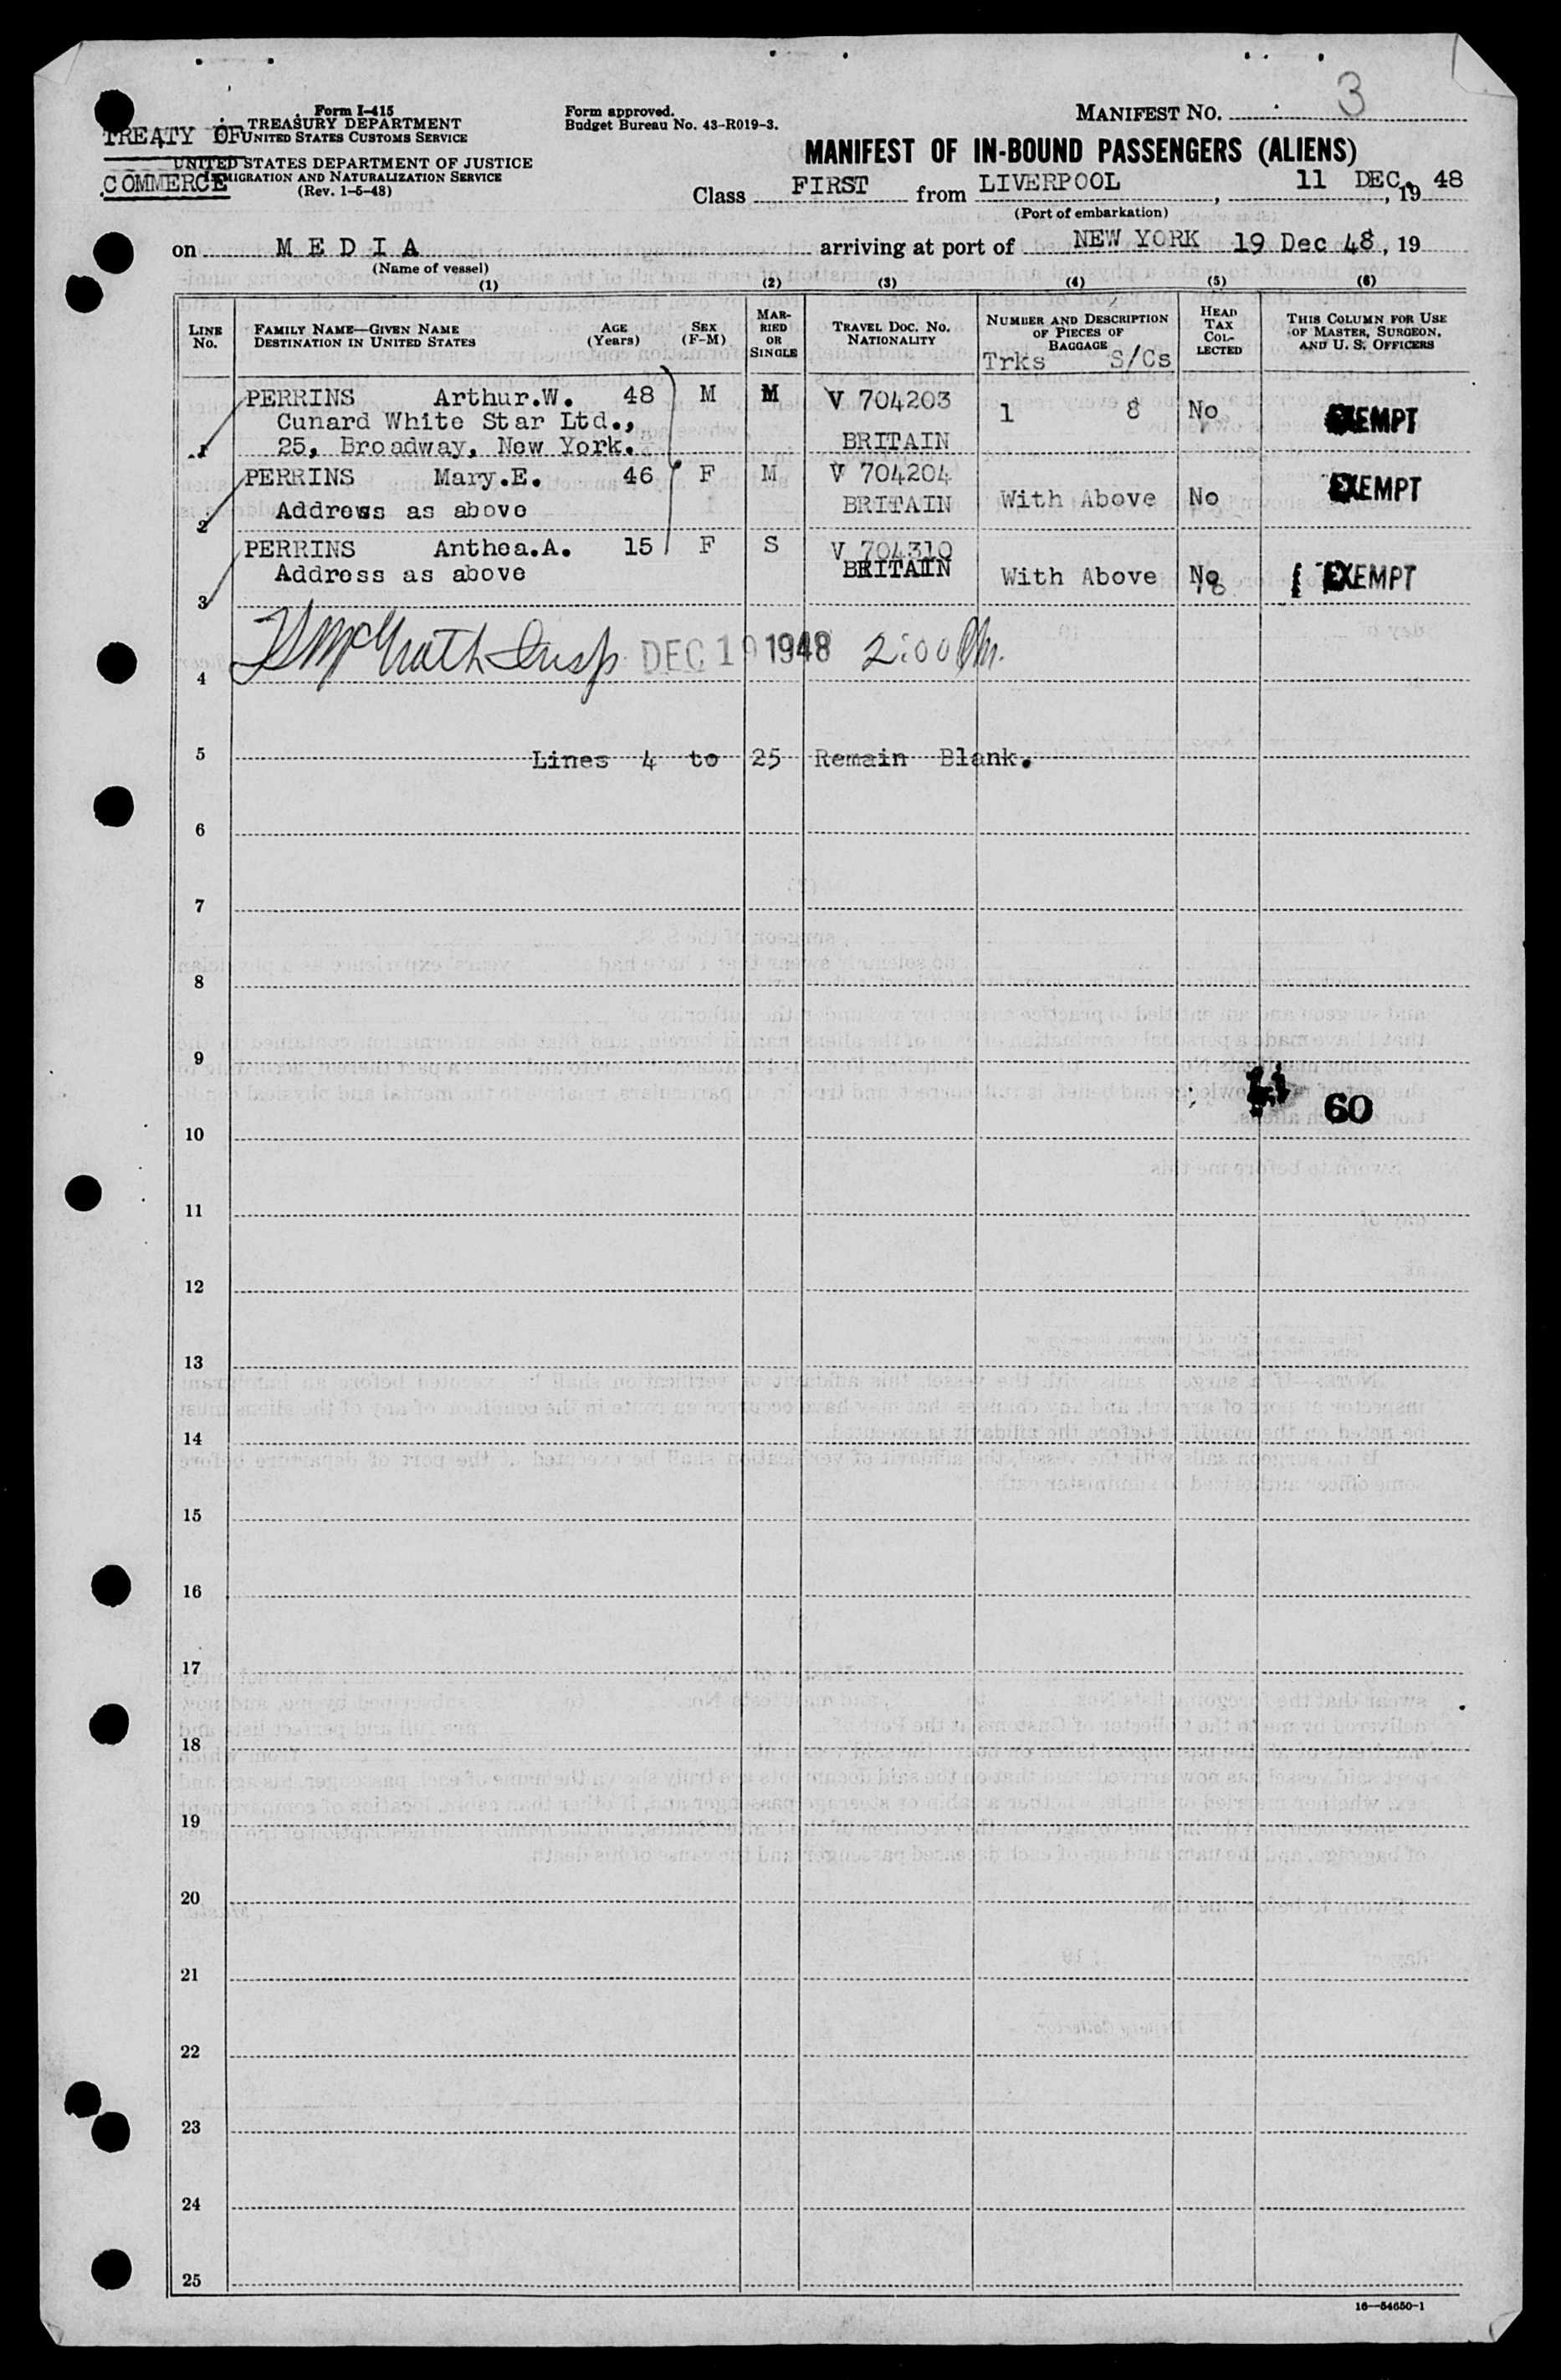 Form I-415
TREASURY DEPARTMENT
UNITED STATES CUSTOMS SERVICE
TREATY OF
UNITED STATES DEPARTMENT OF JUSTICE
IMMIGRATION AND NATURALIZATION SERVICE
COMMERCE
(Rev. 1-5-48)
Form approved.
Budget Bureau No. 43-R019-3.
MANIFEST NO. 3
MANIFEST OF IN-BOUND PASSENGERS (ALIENS)
Class FIRST from LIVERPOOL, 11 DEC, 19 48
(Port of embarkation)
on M E D I A arriving at port of NEW YORK 19 Dec 48, 19
(Name of vessel)
(1) (2) (3) (4) (5) (6)
LINE No. FAMILY NAME—GIVEN NAME DESTINATION IN UNITED STATES AGE (Years) SEX (F-M) MARRIED OR SINGLE TRAVEL DOC. NO. NATIONALITY NUMBER AND DESCRIPTION OF PIECES OF BAGGAGE HEAD TAX COLLECTED THIS COLUMN FOR USE OF MASTER, SURGEON, AND U. S. OFFICERS
Trks S/Cs
PERRINS Arthur.W. 48 M M V 704203 1 8 No EXEMPT
Cunard White Star Ltd.,
1 25, Broadway, New York. BRITAIN
PERRINS Mary.E. 46 F M V 704204 With Above No EXEMPT
2 Address as above BRITAIN
PERRINS Anthea.A. 15 F S V 704310 With Above No EXEMPT
Address as above BRITAIN
3
McGrath Insp DEC 19 1948 2:00 Pm.
4
5 Lines 4 to 25 Remain Blank.
6
7
8
9
60
10
11
12
13
14
15
16
17
18
19
20
21
22
23
24
25
16—54650-1